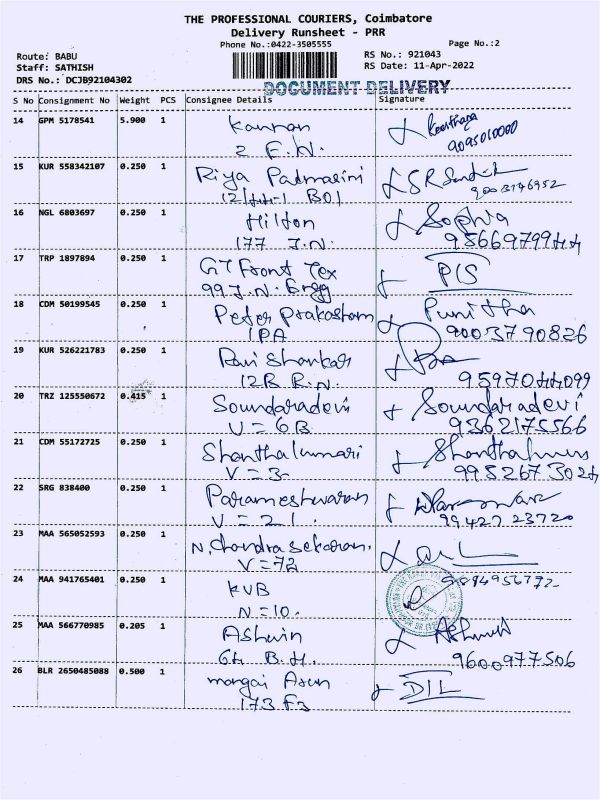 THE PROFESSIONAL COURIERS, Coimbatore
Delivery Runsheet - PRR
Phone No.:0422-3505555
Page No.:2
Route: BABU
RS No.: 921043
Staff: SATHISH
RS Date: 11-Apr-2022
DRS No.: DCJB92104302
DOCUMENT DELIVERY
S No Consignment No Weight PCS Consignee Details Signature
14 GPM 5178541 5.900 1 Kannan
2 F.N. 9095010000
15 KUR 558342107 0.250 1 Riya Padmasini
12/44-1 B01 9003146952
16 NGL 6803697 0.250 1 Hilton Sophia
177 J.N. 9566979944
17 TRP 1897894 0.250 1 GT Front Tex P|S
99 J.N.
18 CDM 50199545 0.250 1 Peter Prakasham Punitha
1PA 9003790826
19 KUR 526221783 0.250 1 Ravi Shankar
12B R.N. 9597044099
20 TRZ 125550672 0.415 1 Soundaradevi Soundaradevi
V = 6B 9362175566
21 CDM 55172725 0.250 1 Shanthakumari
V = 3 9952673024
22 SRG 838400 0.250 1 Parameshwaran
V = 21. 99427 23720
23 MAA 565052593 0.250 1 N. Chandrasekaran.
V = 72
24 MAA 941765401 0.250 1 KVB
N = 10.
25 MAA 566770985 0.205 1 Ashwin Ashwin
64 B.H. 9600977506
26 BLR 2650485088 0.500 1 mangai Arun DIL
173 F3